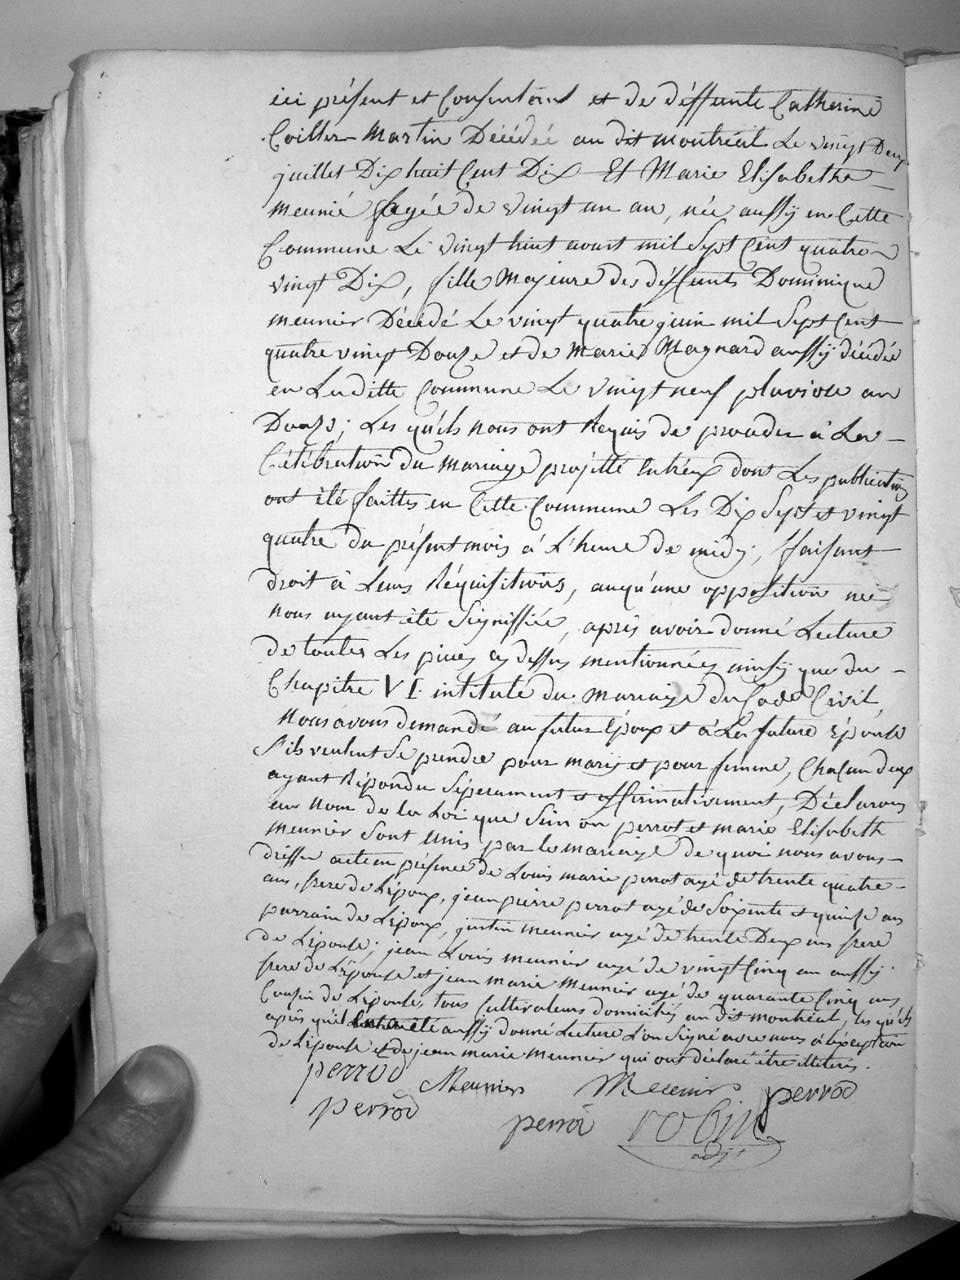 ici présent et Consentant et de deffunte Catherine
Coillon Martin Décédée au dit montréal Le vingt Deux
juillet Dix huit Cent Dix Et Marie Elisabethe
meunié agée de vingt un an, née aussy en Cette
Commune Le vingt huit avart mil Sept Cent quatre
vingt Dix, fille Majeure des deffunts Dominique
meunier Décédé Le vingt quatre juin mil Sept Cent
quatre vingt Douze et de Marie Magnard aussy décédée
en Laditte Commune Le vingt neuf pluviose an
Douze; Les quels nous ont Requis de proceder à La
Célébration du mariage projetté entreux dont Les publications
ont été faittes en Cette Commune Les Dix Sept et vingt
quatre du présent mois à L'heure de midy; ffaisant
droit à Leurs Réquisitions, auqu'une opposition ne
nous ayant été Signiffiée, après avoir donné Lecture
de toutes Les pieces cy dessus mentionnées ainsy que du
Chapitre VI intitulé du mariage du Code Civil,
Nous avons demandé au futur Epoux et à La future Epouse
S'ils veulent Se prendre pour mary et pour femme, Chacun deux
ayant Répondu Séparement et affirmativement, Déclarons
au nom de la Loi que Simon perrot et marie Elisabeth
meunier Sont Unis par Le mariage De quoi nous avons
dressé acte en présence de Louis marie perrot agé de trente quatre
ans, frere de L'époux, jean pierre perrot agé de Soixente et quinze ans
parrain de L'époux, justin meunier agé de trente Deux ans frere
de L'épouse; jean Louis meunier agé de vingt Cinq an aussy
frere de L'épouse et jean marie meunier agé de quarante Cinq ans
Cousin de L'épouse, tous Cultivateurs domiciliés au dit montréal, les quels
après qu'il Leur a été aussy donné Lecture L'on Signé avec nous à l'exception
de L'épouse et de jean marie meunier qui ont déclaré être illiterés.
perrod Meunier Meunier perrod
perrod perrod robin
adjt